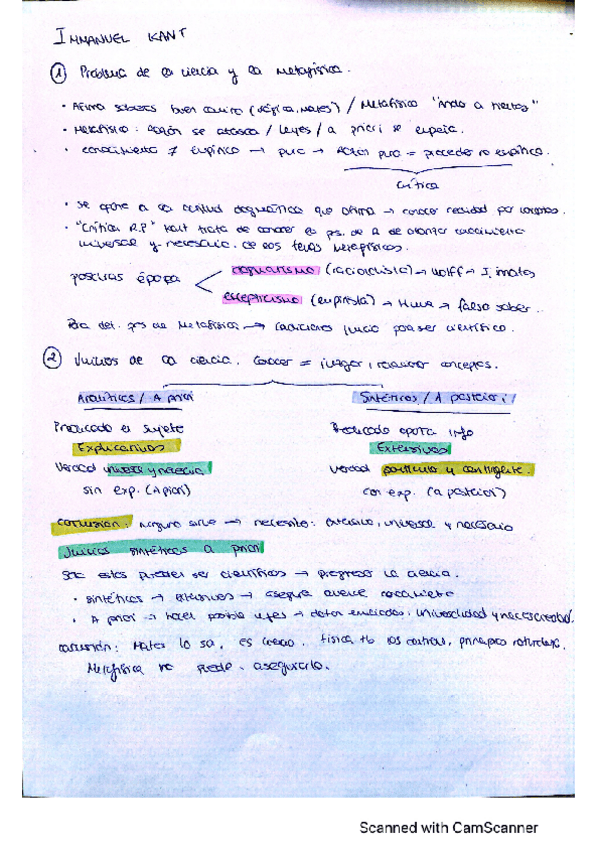 IMMANUEL KANT
1 Problema de la ciencia y la metafísica.
· Afirma saberes buen camino (lógica, mates) / Metafísica "Anda a tientas"
· Metafísica: Razón se atasca / leyes / a priori se
· conocimiento ≠ empírico → puro → Razón pura = proceder no empírico.
Crítica
· se opone a la actitud dogmática que afirma → conocer realidad por conceptos.
· "Crítica R.P" Kant trata de conocer la ps. de R de alcanzar conocimiento
universal y necesario. de los temas metafísicos.
posturas época
dogmatismo (racionalista) → Wolff → I. innatas
escepticismo (empirista) → Hume → falso saber..
Para det. ps de Metafísica → condiciones juicio para ser científico.
2 Juicios de la ciencia. Conocer = juzgar, relacionar conceptos.
Analíticos / A priori
Sintéticos / A posteriori
Predicado el sujeto
Predicado aporta info
Explicativos
Extensivos
Verdad universal y necesaria
Verdad particular y contingente.
sin exp. (A priori)
con exp. (a posteriori)
conclusión: ninguno sirve → necesito: extensivo, universal y necesario
Juicios sintéticos a priori
Solo estos pueden ser científicos → progresar la ciencia.
· sintéticos → extensivos → asegura avance conocimiento
· A priori → hacen posible leyes → dotan enunciados. universalidad y necesariedad.
conclusión: Mates lo son, es ciencia. Física tb los contiene, principios
Metafísica no puede. asegurarlo.
Scanned with CamScanner